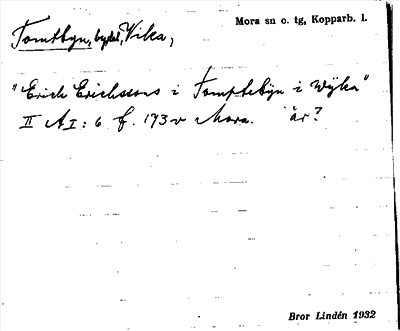 Tomtbyn, bydel, Vika,
Mora sn o. tg, Kopparb. l.
"Erich Erichssons i Tomptebÿn i Wÿka"
II AI: 6 f. 173 v Mora. år?
Bror Lindén 1932